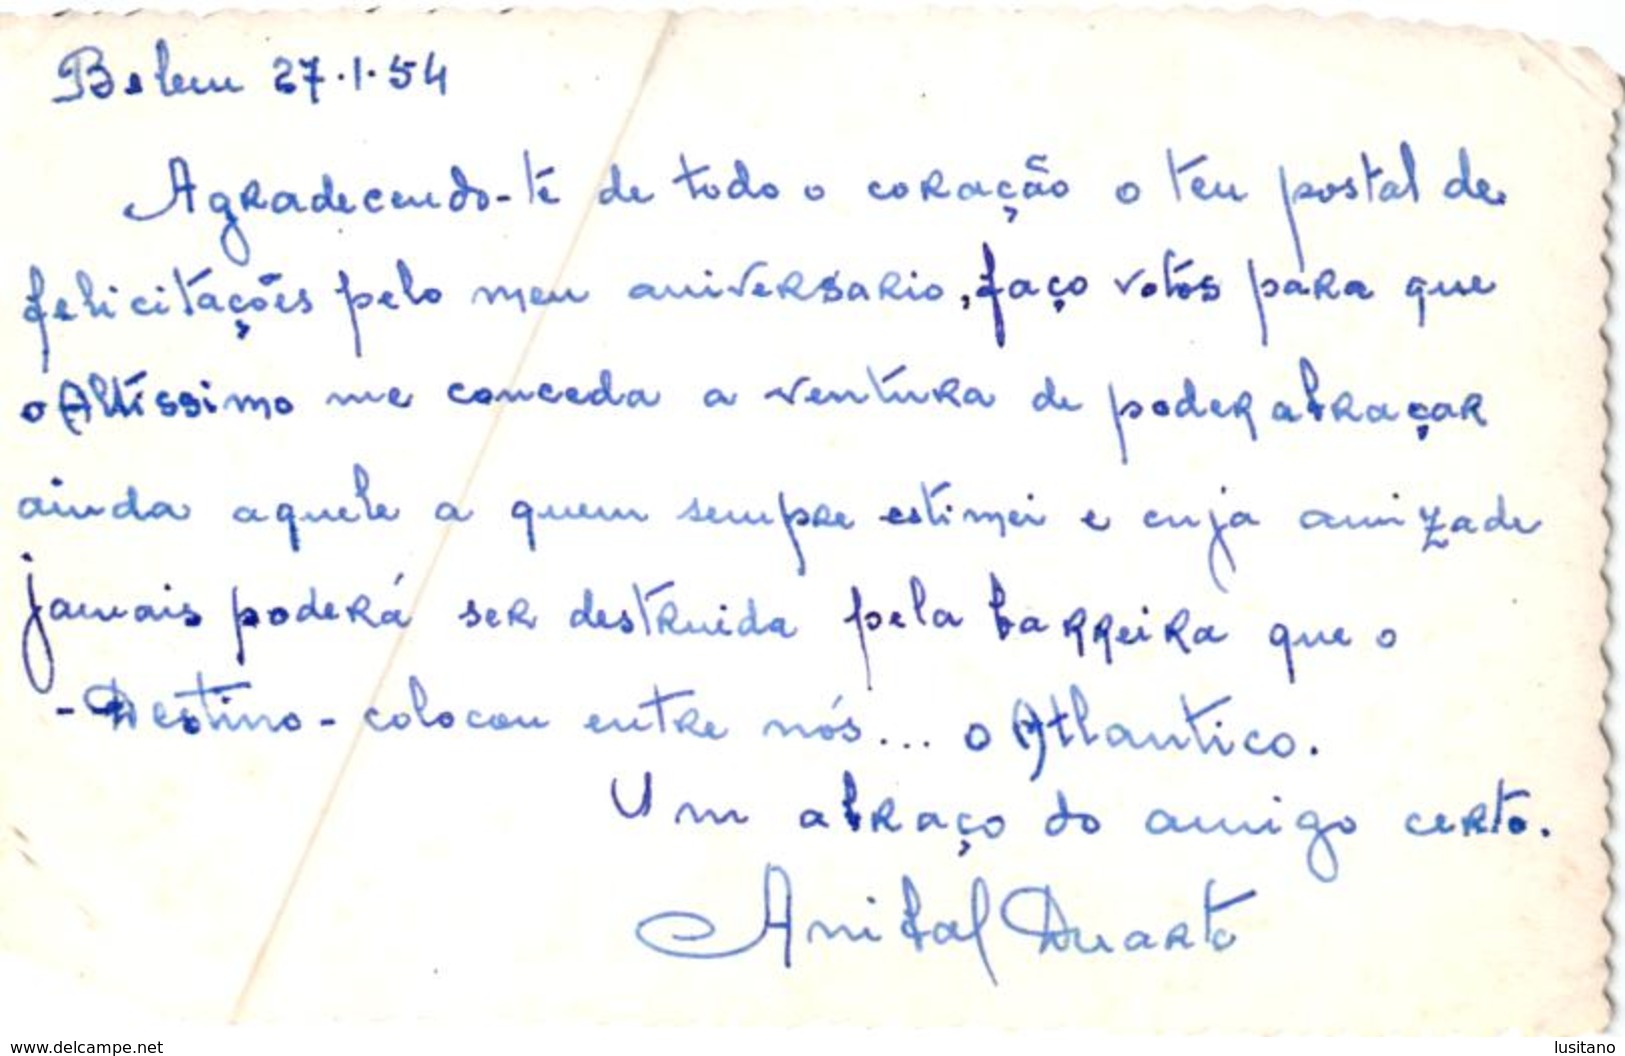 Belem 27.1.54
Agradecendo-te de todo o coração o teu postal de
felicitações pelo meu aniversario, faço votos para que
o Altíssimo me conceda a ventura de poder abraçar
ainda aquele a quem sempre estimei e cuja amizade
jamais poderá ser destruida pela barreira que o
-Destino- colocou entre nós... o Atlantico.
Um abraço do amigo certo.
Anibal Duarte
www.delcampe.net
lusitano